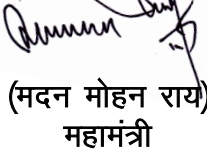 (मदन मोहन राय)
महामंत्री